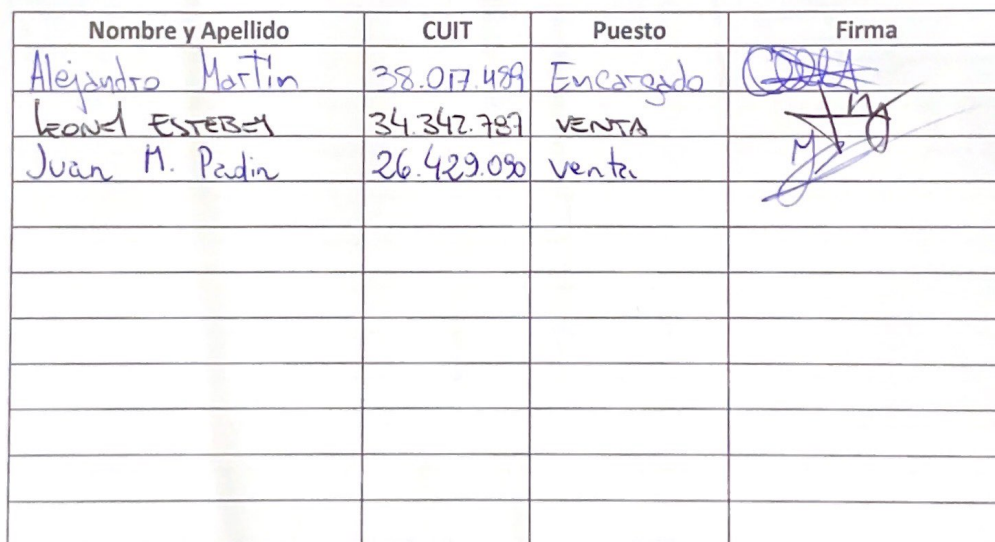 Nombre y Apellido CUIT Puesto Firma
Alejandro Martín 38.017.489 Encargado
LEONEL ESTEBEY 34.342.797 VENTA
Juan M. Padin 26.429.090 venta